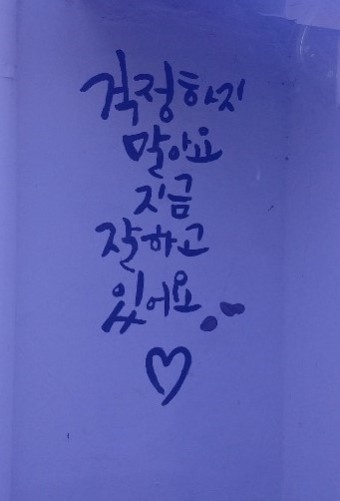 걱정하지
말아요
지금
잘하고
있어요..
♡